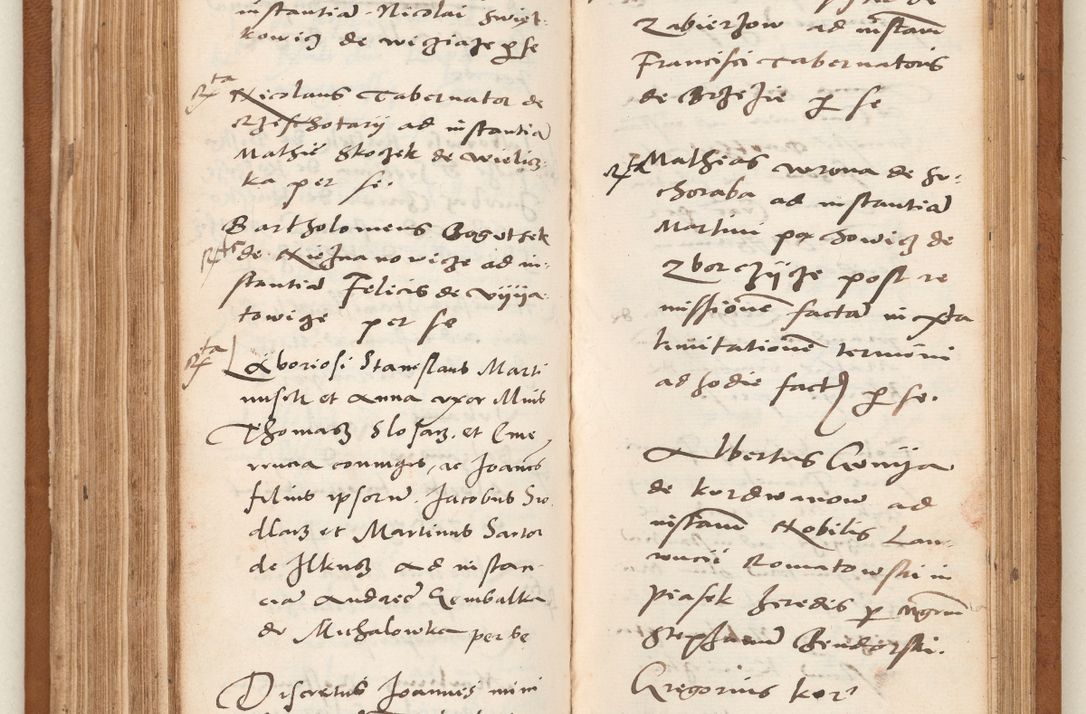 instantiã Nicolai Swiąt-
kowicz de wiziaze p se
Rta Nicolaus Tabernator de
Rzeschotarÿ ad instantiã
Mathie Skoczek de wielicz
ka per se.
Bartholomeus Bogutsek
Rta de Nieznanowicze ad in-
stantiã Felicis de Vÿÿa
towicze per se
Rta Laboriosi Stanislaus Marti
nusek et Anna uxor Eius
Thomas Slosarz et Eme
rencia coniuges, ac Joanes
filius ipsorũ Jacobus Sio
dlarz et Martinus Sartor
de Ilkusz ad instan
ciã Andreæ Gembalka
de Michalowka per se
Discretus Joannes mini
Zabierzow ad instam
Francisci Tabernatoris
de Brzezie p se
Rta Mathias Wrona de So-
choraba ad instantiã
Martini pa chowicz de
Zborczÿcze post re
missionẽ factã in xta
limitationẽ termini
ad hodie fact p se.
Albertus Gonÿa
de Kordwanow ad
instam Nobilis Lau-
rencii Romatowski in
Piasek heredis p mgrum
Stephanum Benderski.
Gregorius kor